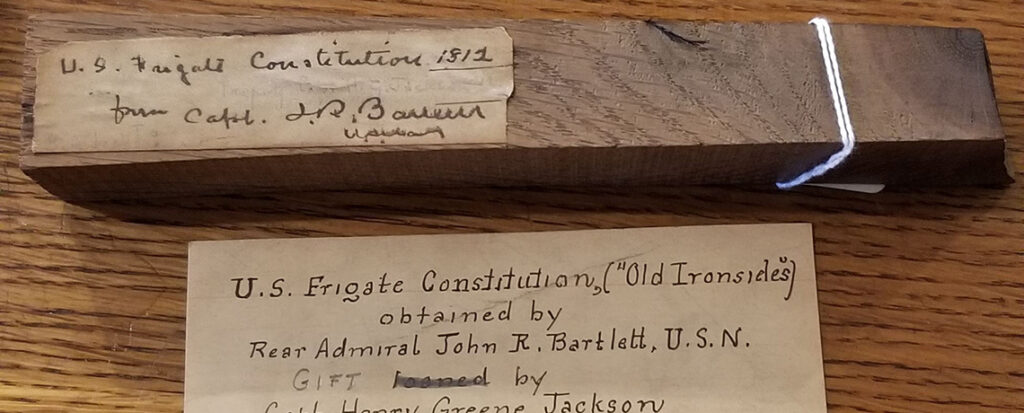 U. S. Frigate Constitution 1812
from Capt. J. R.
U.S. Frigate Constitution, ("Old Ironsides")
obtained by
Rear Admiral John R. Bartlett, U.S.N.
GIFT loaned by
Henry Greene Jackson